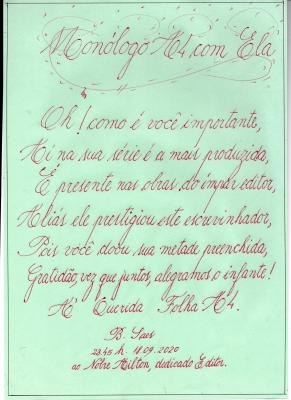 Monólogo A4 com Ela
Oh! como é você importante,
Aí na sua série é a mais produzida,
É presente nas obras do ímpar editor,
Aliás ele prestigiou este escrevinhador,
Pois você doou sua metade preenchida,
Gratidão, vez que juntos, alegramos o infante!
A' Querida Folha A4.
B. Saes
23.45 h. 18.09.2020
ao Nobre Milton, dedicado Editor.